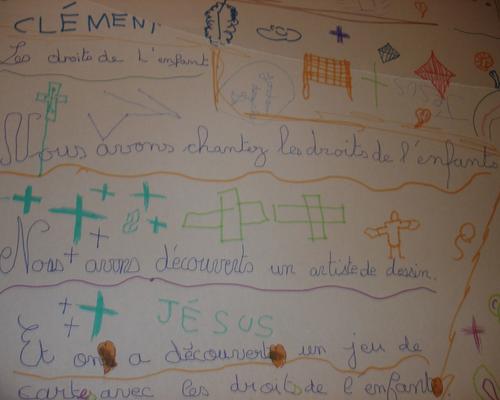 CLÉMENT
Les droits de l'enfant
Nous avons chantez les droits de l'enfants
Nous avons découverts un artiste de dessin.
JÉSUS
Et on a découvert un jeu de
cartes avec les droits de l'enfant